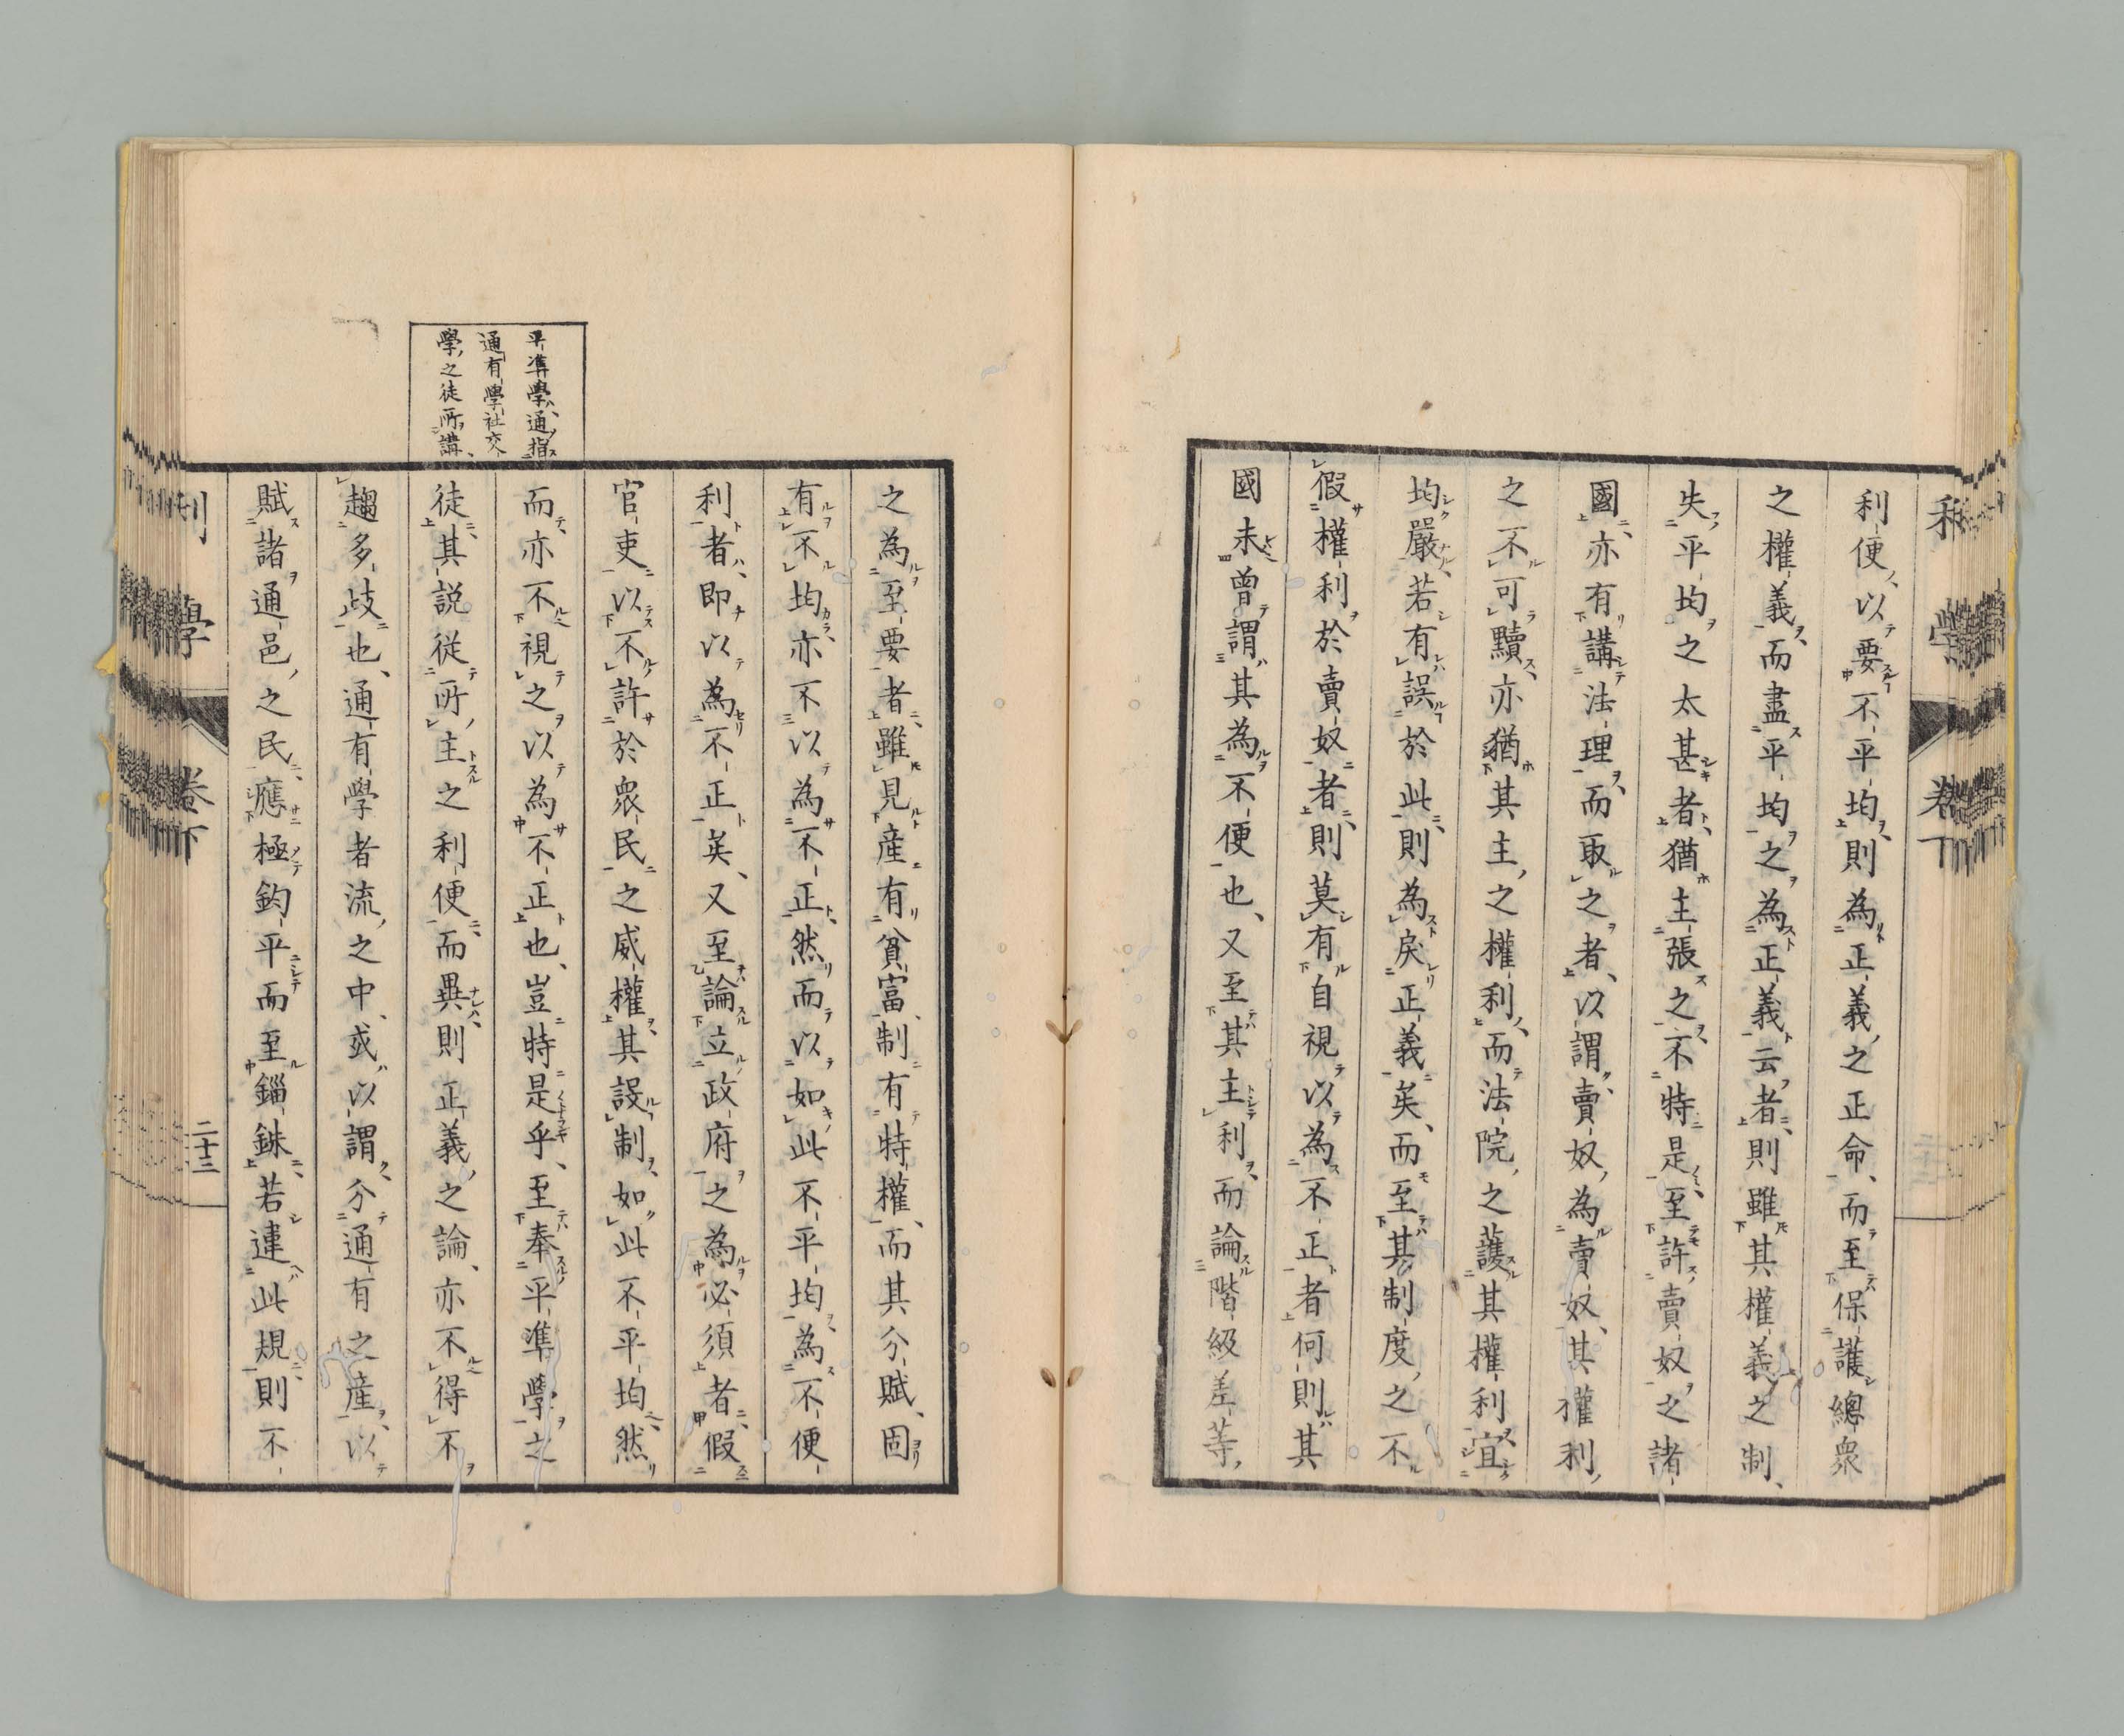 利學
卷下
利便、以要不平均、則為正義之正命、而至保護總衆
之權義、而盡平均之為正義云者、則雖其權義之制、
失平均之太甚者、猶主張之、不特是、至許賣奴之諸
國、亦有講法理、而取之者、以謂賣奴、為賣奴、其權利
之不可黷、亦猶其主之權利、而法院之護其權利、宜
均嚴、若有誤於此、則為戾正義矣、而至其制度之不
假權利於賣奴者、則莫有自視以為不正者、何則其
國未曾謂其為不便也、又至其主利、而論階級差等
之為至要者、雖見產有貧富、制有特權、而其分賦、固
有不均、亦不以為不正、然而以如此不平均、為不便
利者、即以為不正矣、又至論立政府之為必須者、假
官吏以不許於衆民之威權、其設制、如此不平均、然
而亦不視之以為不正也、豈特是乎、至奉平準學之
徒、其說從所主之利便、而異則正義之論、亦不得不
趨多歧也、通有學者流之中、或以謂分通有之產、以
賦諸通邑之民、應極鈞平而至錙銖、若違此規、則不
平準學、通指
通有學社交
學之徒所講
學
卷下
二十三